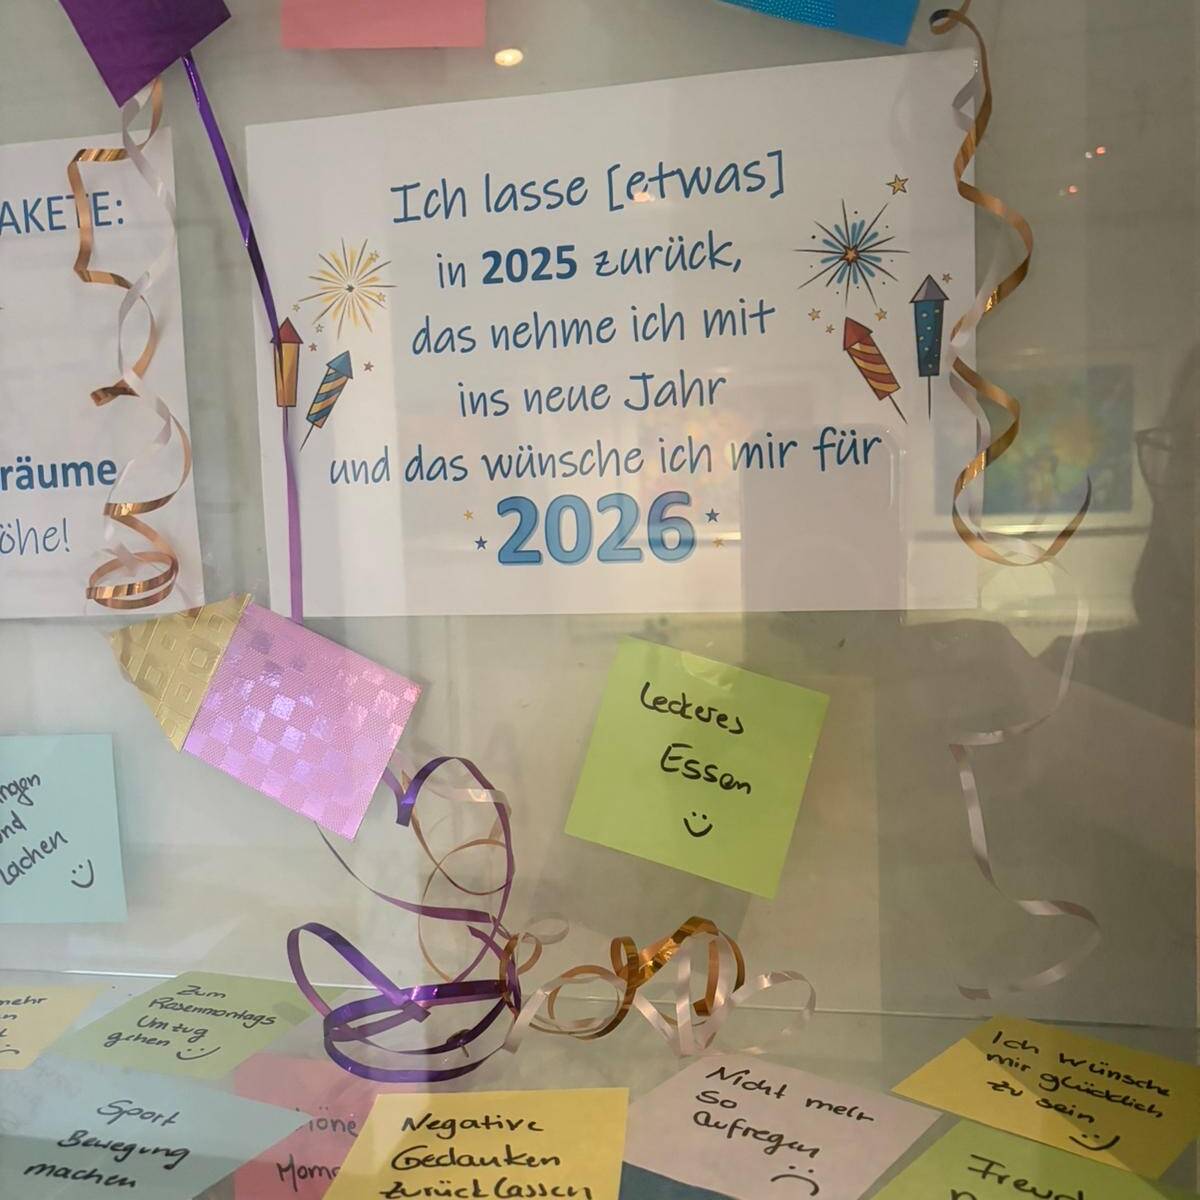 Ich lasse [etwas]
in 2025 zurück,
das nehme ich mit
ins neue Jahr
und das wünsche ich mir für
2026
AKETE:
räume
öhe!
Leckeres
Essen
ngen
nd
Lachen
mehr
Zum
Rosenmontags
Umzug
gehen
Sport
Bewegung
machen
Mome
Negative
Gedanken
zurücklassen
Nicht mehr
so
aufregen
Ich wünsche
mir glücklich
zu sein